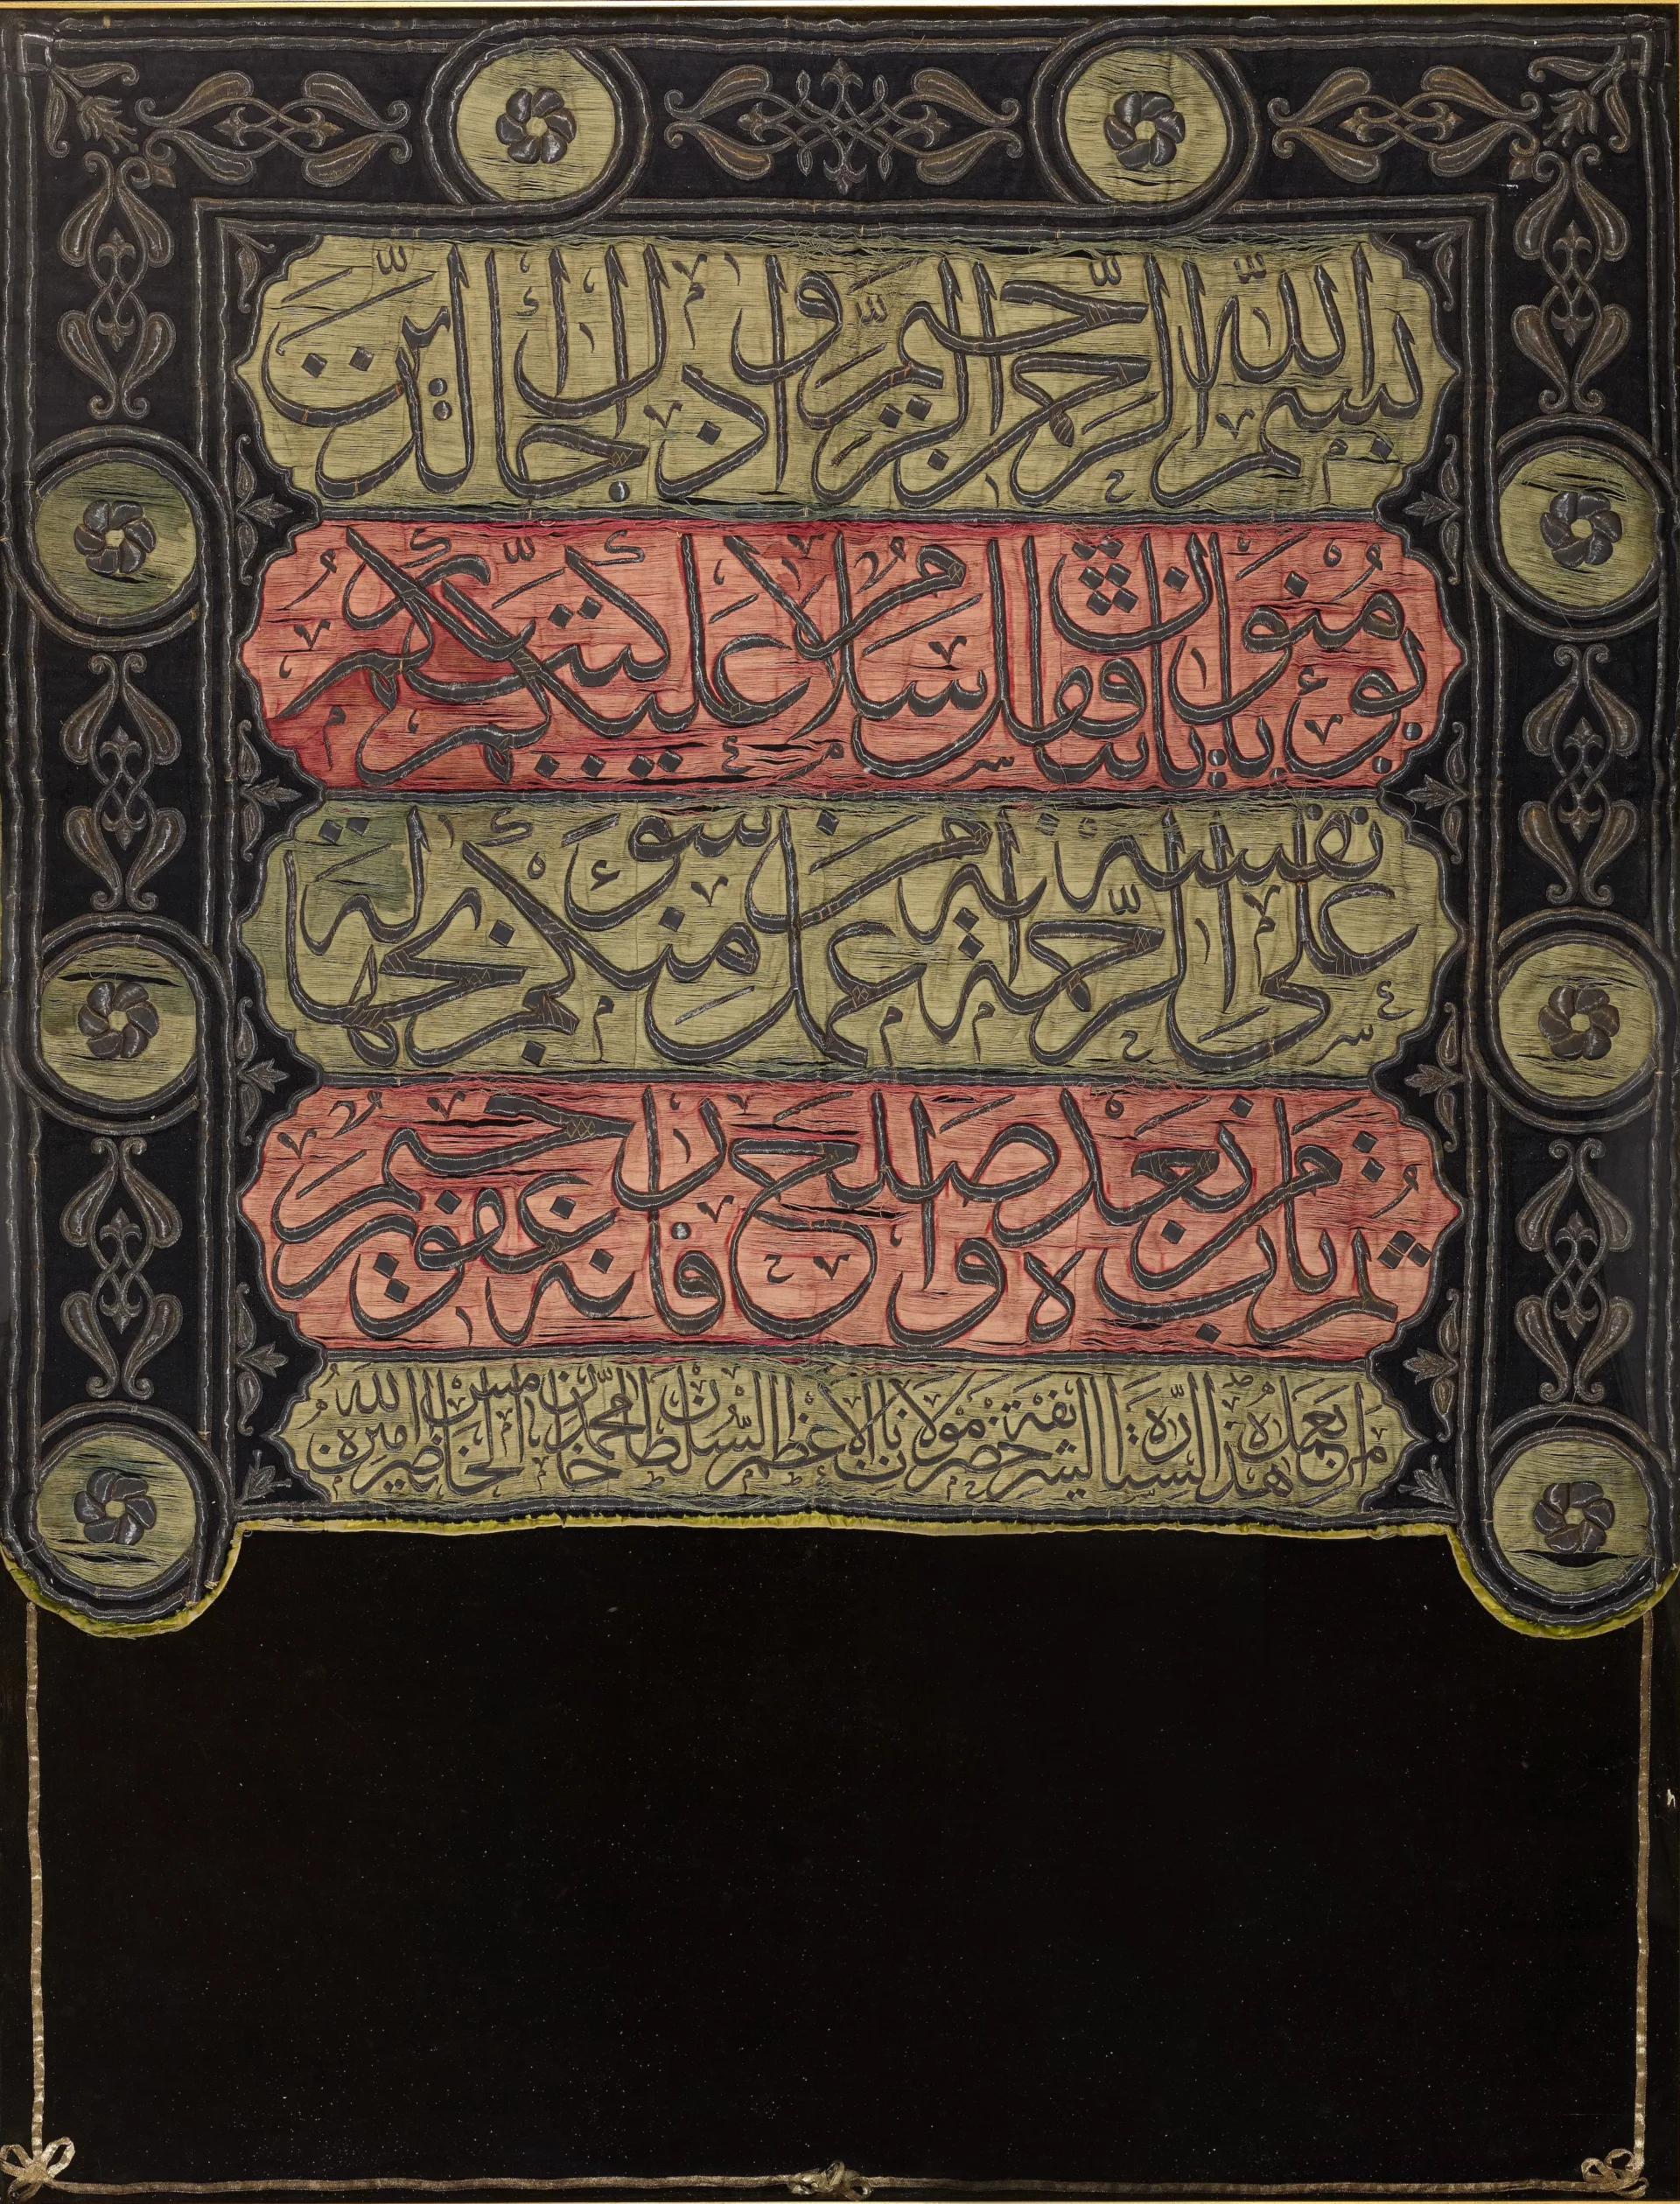 بسم الله الرحمن الرحيم واذا جاءك الذين
يؤمنون باياتنا فقل سلام عليكم كتب ربكم
على نفسه الرحمة انه من عمل منكم سوءا بجهالة
ثم تاب من بعده واصلح فانه غفور رحيم
امر بعمل هذه الستارة الشريفة حضرت مولانا الاعظم السلطان محمد خان الخامس الله